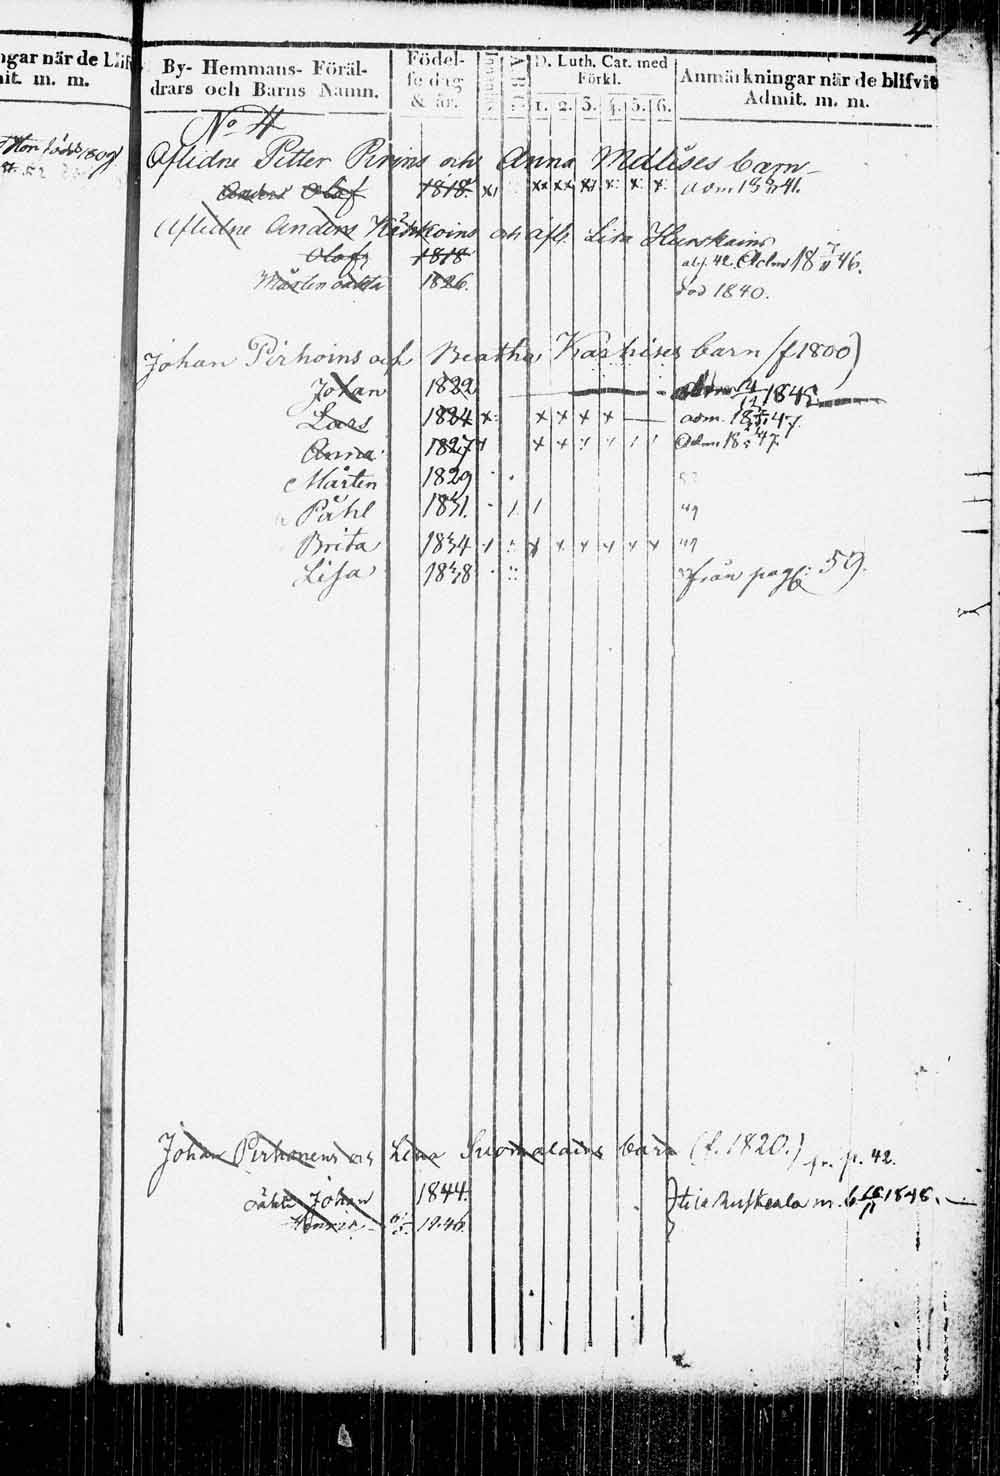 41
ngar när de blif
nit. m. m.
By- Hemmans- Föräl-
drars och Barns Namn.
Födel-
se dag
& år.
Innanläs.
A.B.C.
D. Luth. Cat. med
Förkl.
1. 2. 3. 4. 5. 6.
Anmärkningar när de blifvit
Admit. m. m.
No 4
Aflidne Petter Pirins och Anna Mälises barn
Anders Olof 1818. adm 18 41.
Aflidne Anders och afl. Lisa Hurskains
Olof 1818 afg. 42. Adm 18 46.
Mårten 1826. död 1840.
Johan Pirhoins och Beatha Karhises barn (f 1800)
Johan 1822 1845
Lars 1824 adm. 18 47.
Anna 1827 Adm 18 47.
Mårten 1829
Påhl 1831. 49
Brita 1834 49
Lisa 1838 från pag: 59.
Johan Pirhonens och Lena Suomalains barn (f. 1820.) fr. p. 42.
Johan 1844. till Ruskeala m. 6 1848.
1846.